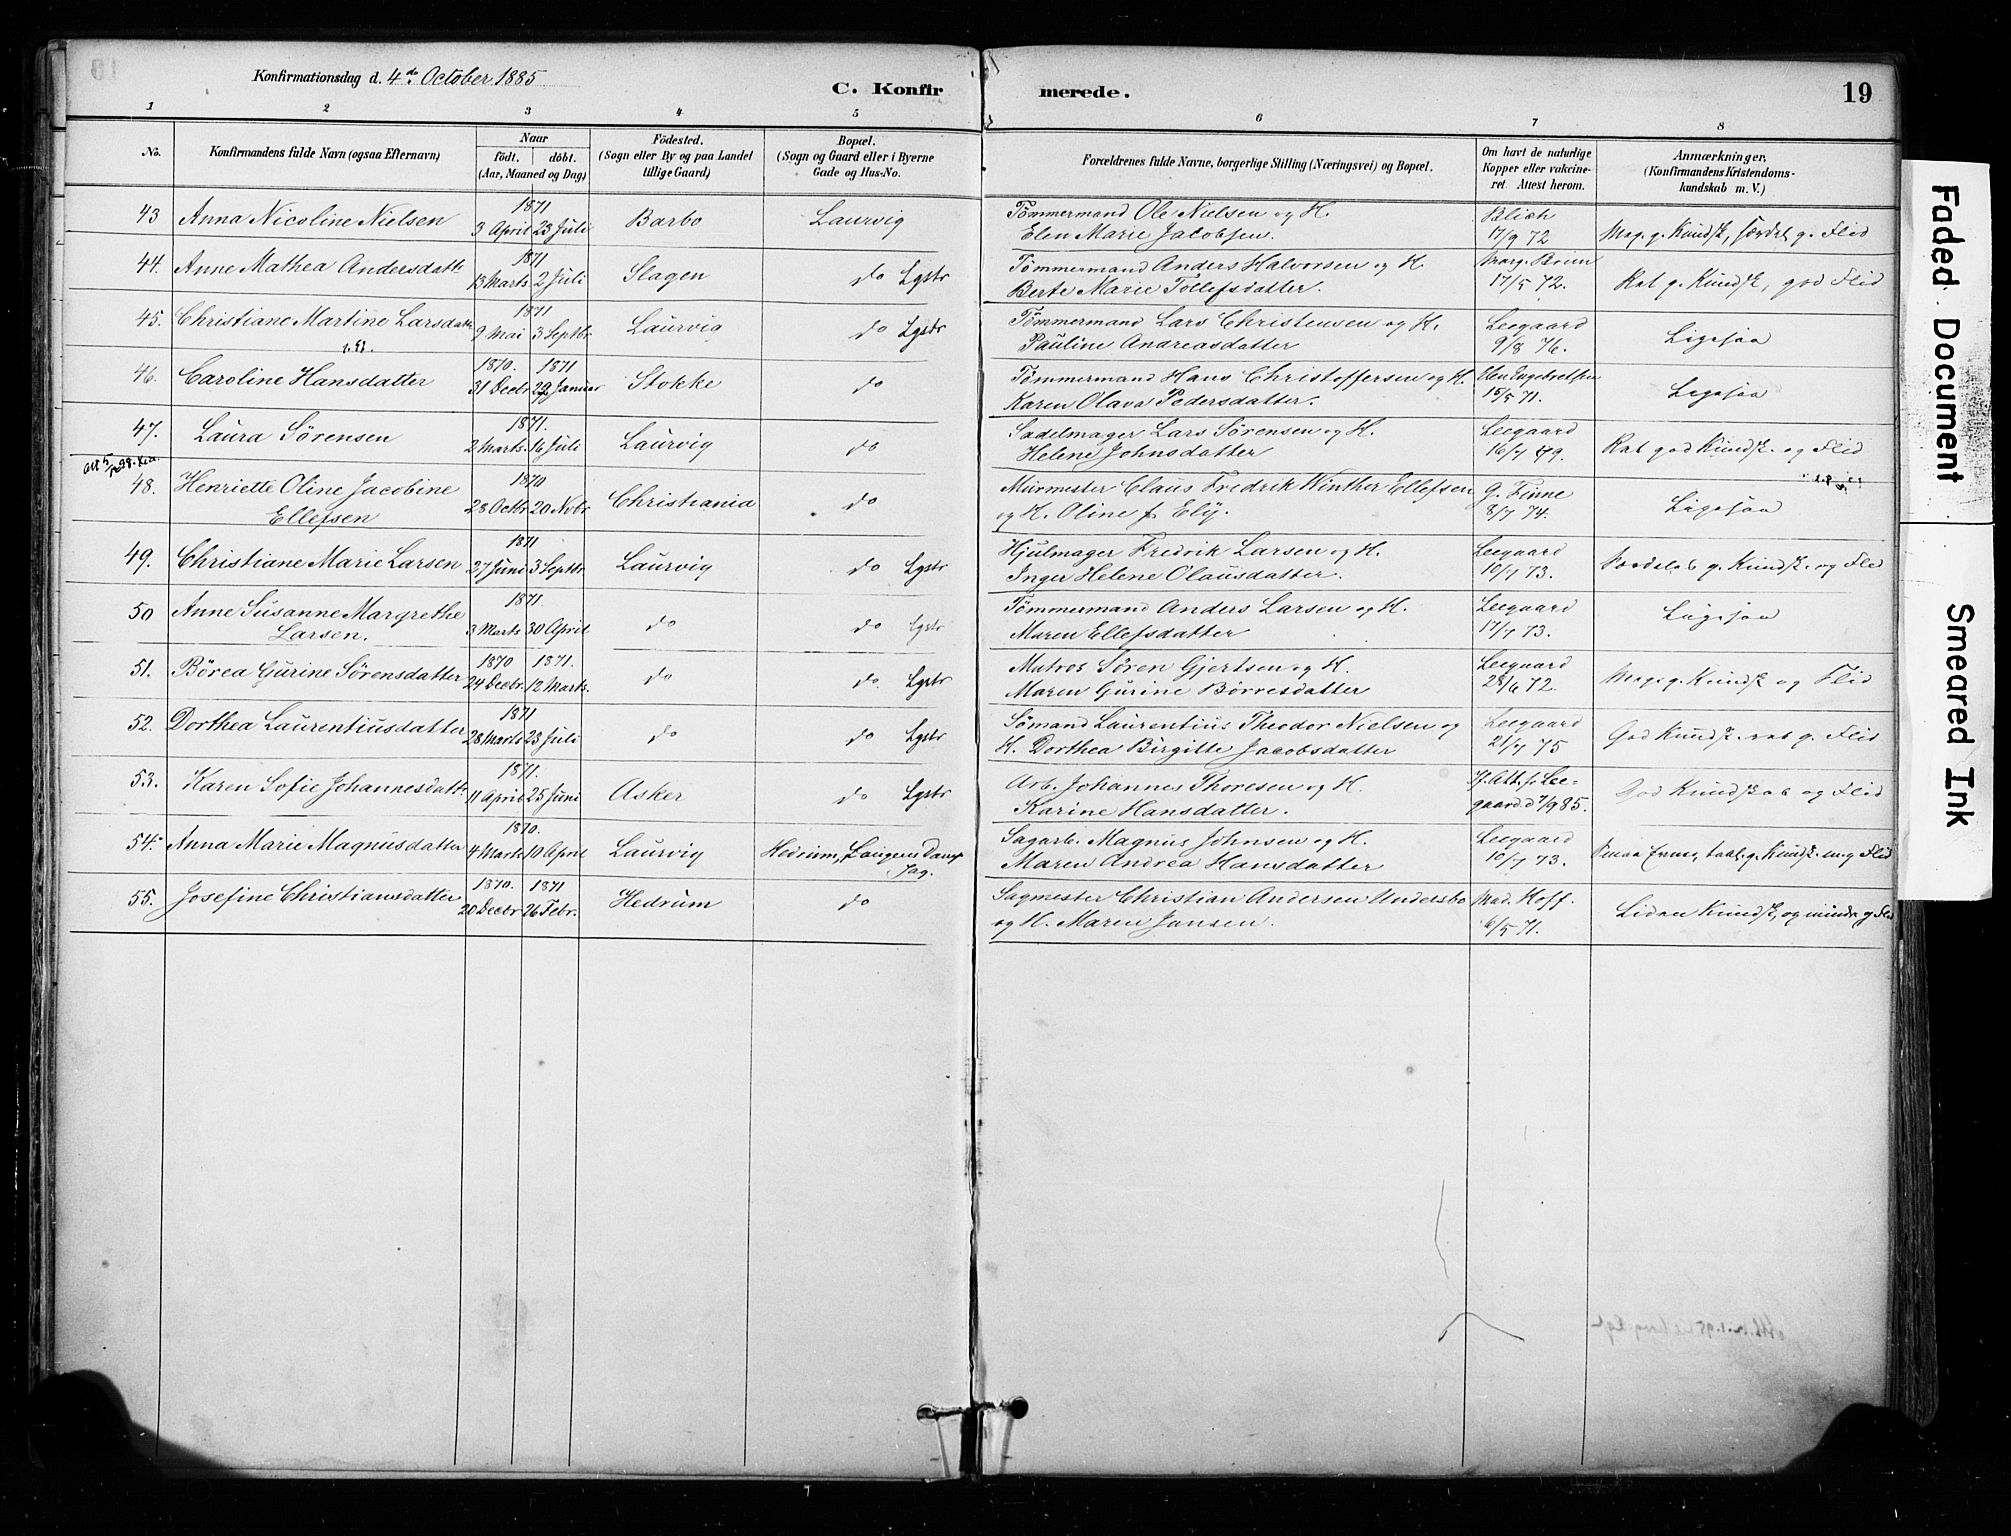 Konfirmationsdag d. 4de October 1885
C. Konfirmerede.
19
1 2 3 4 5 6 7 8
No. Konfirmandens fulde Navn (ogsaa Efternavn) Naar født. døbt. (Aar, Maaned og Dag) Fødested. (Sogn eller By og paa Landet tillige Gaard) Bopæl. (Sogn og Gaard eller i Byerne Gade og Hus-No. Forældrenes fulde Navne, borgerlige Stilling (Næringsvei) og Bopæl. Om havt de naturlige Kopper eller vakcineret. Attest herom. Anmærkninger. (Konfirmandens Kristendomskundskab m. V.)
43 Anna Nicoline Nielsen 1871 3 April 23 Juli Barbo Laurvig Tømmermand Ole Nielsen og H.
Elen Marie Jacobsen. Blich 17/9 72 Mag. g. Kundsk., særdel. g. Flid
44. Anne Mathea Andersdattr 1871 13 Marts 2 Juli Slagen do Lgstr Tømmermand Anders Halvorsen og H.
Berte Marie Tollefsdatter. Brun 17/5 72. g. Kundsk, god Flid
45. Christiane Martine Larsdattr 1871 9 Mai 3 Septbr Laurvig do Lgstr Tømmermand Lars Christensen og H.
Pauline Andreasdatter Leegaard 9/8 76. Ligesaa
46. Caroline Hansdatter 1870. 1871 31 Decbr 29 Januar Stokke do Tømmermand Hans Christoffersen og H.
Karen Olava Pedersdatter. Engebretsen 15/5 71. Ligesaa
47. Laura Sørensen 1871. 2 Marts 16 Juli Laurvig do Sadelmager Lars Sørensen og H.
Helene Johnsdatter Leegaard 16/7 79. god Kundsk. og Flid
48. Henriette Oline Jacobine
Ellefsen 1870 28 Octbr 20 Novbr Christiania do Murmester Claus Fredrik Winther Ellefsen
og H. Oline f. G. Finne 8/7 74. Ligesaa
49. Christiane Marie Larsen 1871 27 Juni 3 Septbr Laurvig do Lgstr Hjulmager Fredrik Larsen og H.
Inger Helene Olausdatter. Leegaard 10/7 73. g. Kundsk. og Flid
50 Anne Susanne Margrethe
Larsen. 1871. 3 Marts 30 April do do Lgstr Tømmermand Anders Larsen og H.
Maren Ellefsdatter Leegaard 17/7 73. Ligesaa
51. Børea Gurine Sørensdatter 1870 1871. 24 Decbr. 12 Marts. do do. Lgstr Matros Søren Gjertsen og H.
Maren Gurine Børresdatter Leegaard 28/6 72. Meg. g. Kundsk og Flid
52. Dorthea Laurentiusdatter 1871 28 Marts 23 Juli do do Lgstr Sømand Laurentius Theodor Nielsen og
H. Dorthea Birgitte Jacobsdatter Leegaard 21/7 75 God Kundsk. g. Flid
53. Karen Sofie Johannesdattr 1871. 11 April 25 Juni Asker do Lgstr Arb. Johannes Thoresen og H.
Karine Hansdatter. Att. f. Leegaard d 7/9 85. God Kundskab og Flid
54. Anna Marie Magnusdatter 1870. 4 Marts 10 April Laurvig Hedrum, Laugens Damp
Sag. Sagarb. Magnus Johnsen og H.
Maren Andrea Hansdatter Leegaard 10/7 73. g. Kundsk. m. g Flid
55. Josefine Christiansdatter 1870. 1871 20 Decbr 26 Febr. Hedrum do Sagmester Christian Andersen Undersbo
og H. Maren Jansen. Mad. Hoff. 6/5 71. Liden Kundsk, og mindr g Flid
Faded Document
Smeared Ink